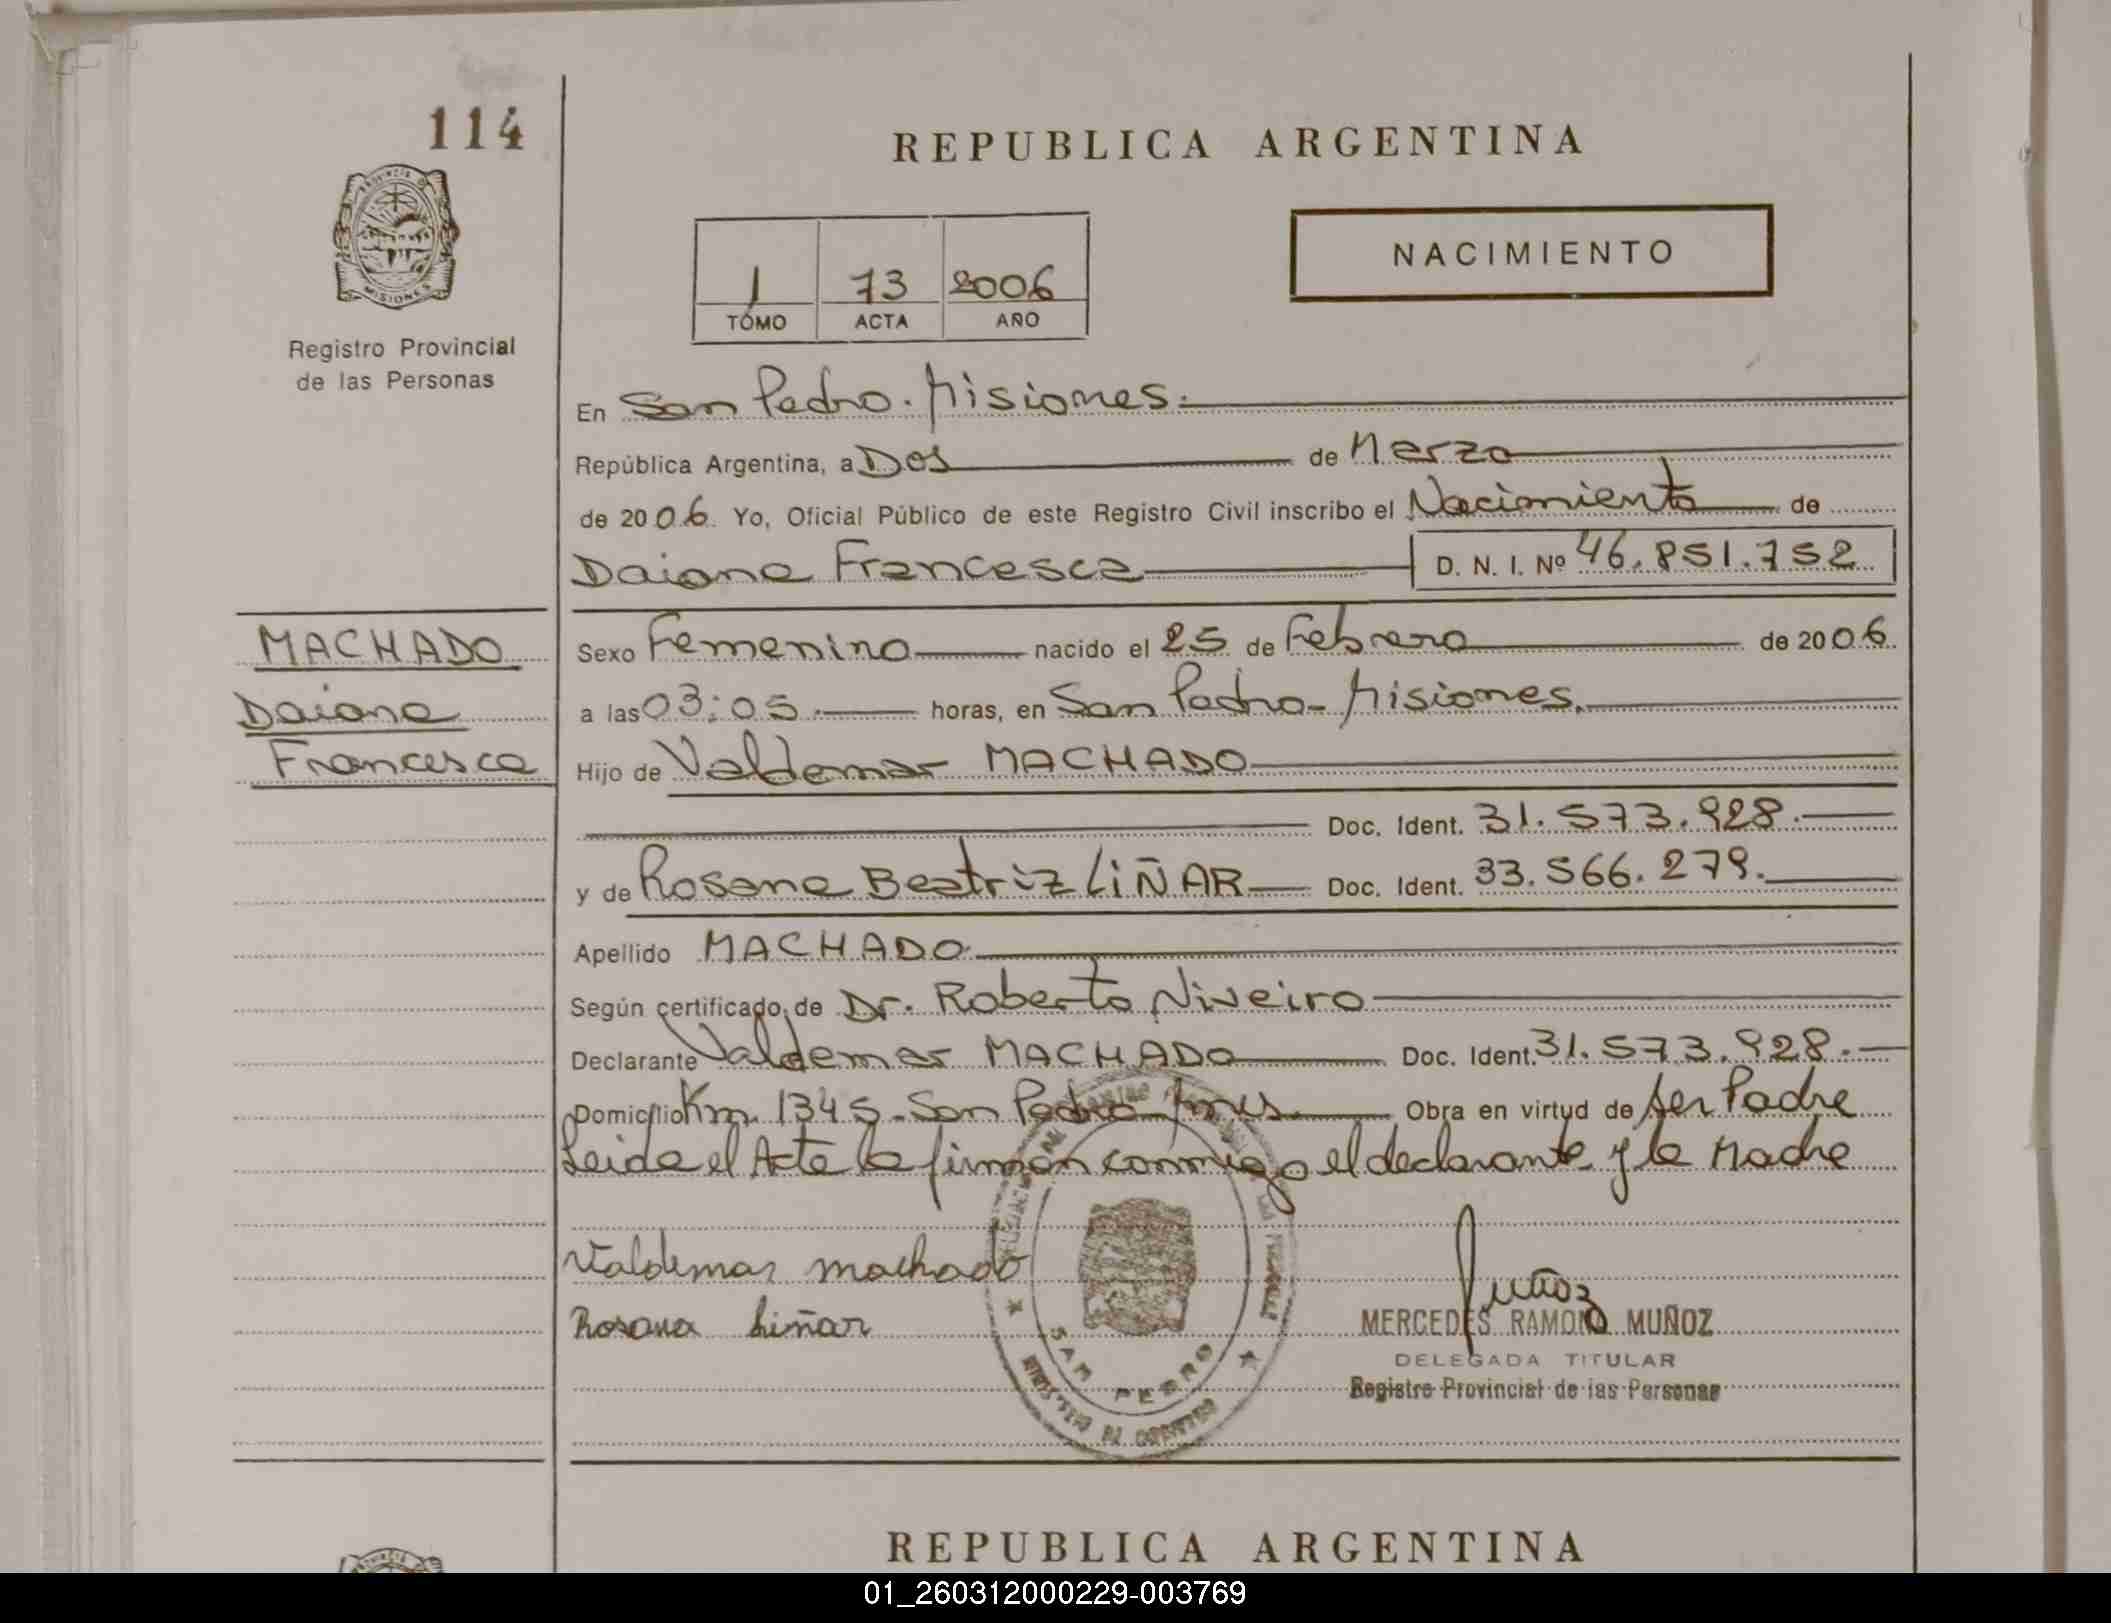 114
REPUBLICA ARGENTINA
PROVINCIA DE
MISIONES
Registro Provincial
de las Personas
NACIMIENTO
1 73 2006
TOMO ACTA AÑO
En San Pedro. Misiones.
República Argentina, a Dos de Marzo
de 2006. Yo, Oficial Público de este Registro Civil inscribo el Nacimiento de
Daiana Francesca D. N. I. Nº 46.851.752
MACHADO
Daiana
Francesca
Sexo Femenino nacido el 25 de Febrero de 2006
a las 03:05. horas, en San Pedro - Misiones.
Hijo de Valdemar MACHADO
Doc. Ident. 31.573.928.
y de Rosana Beatriz LiÑAR Doc. Ident. 33.566.279.
Apellido MACHADO
Según certificado de Dr. Roberto Niveiro
Declarante Valdemar MACHADO Doc. Ident. 31.573.928.
Domicilio Km. 1345 - San Pedro - Mnes. Obra en virtud de ser Padre
Leida el Acta la firman conmigo el declarante y la Madre
Valdemar machado
Rosana Liñar
SAN PEDRO
Muñoz
MERCEDES RAMONA MUÑOZ
DELEGADA TITULAR
Registro Provincial de las Personas
REPUBLICA ARGENTINA
01_260312000229-003769